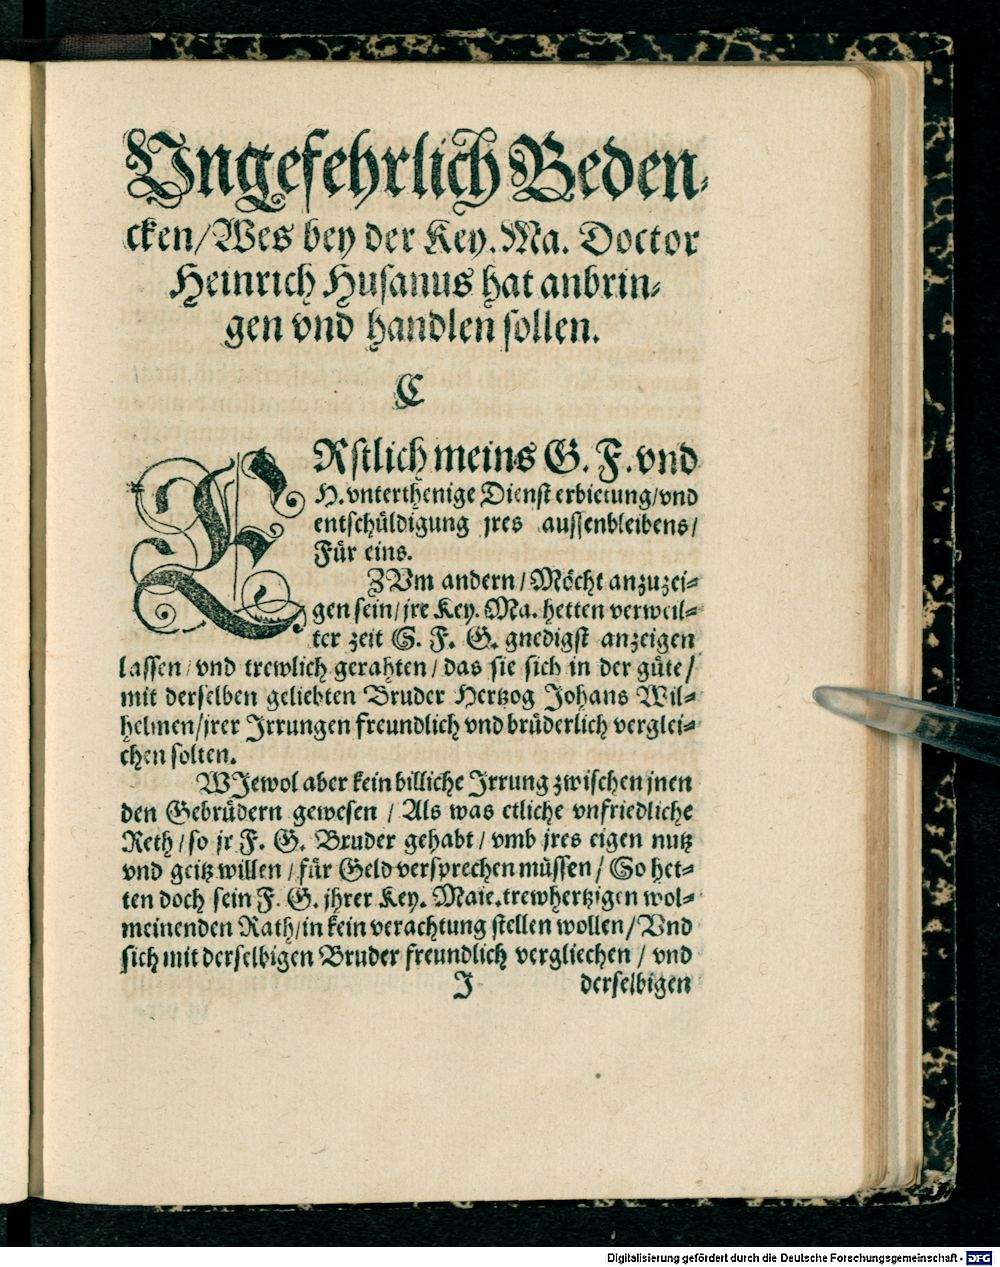 Vngefehrlich Beden-
cken/Wes bey der Key. Ma. Doctor
Heinrich Husanus hat anbrin-
gen vnd handlen sollen.
C
ERstlich meins G. F. vnd
H. vnterthenige Dienst erbietung/vnd
entschüldigung jres aussenbleibens/
Für eins.
ZVm andern/Möcht anzuzei-
gen sein/jre Key. Ma. hetten verweil-
ter zeit S. F. G. gnedigst anzeigen
lassen/vnd trewlich gerahten/das sie sich in der güte/
mit derselben geliebten Bruder Hertzog Johans Wil-
helmen/jrer Irrungen freundlich vnd brüderlich verglei-
chen solten.
WIewol aber kein billiche Irrung zwischen jnen
den Gebrüdern gewesen/Als was etliche vnfriedliche
Reth/so jr F. G. Bruder gehabt/vmb jres eigen nutz
vnd geitz willen/für Geld versprechen müssen/So het-
ten doch sein F. G. jhrer Key. Maie. trewhertzigen wol-
meinenden Rath/in kein verachtung stellen wollen/Vnd
sich mit derselbigen Bruder freundlich vergliechen/vnd
J derselbigen
Digitalisierung gefördert durch die Deutsche Forschungsgemeinschaft - DFG